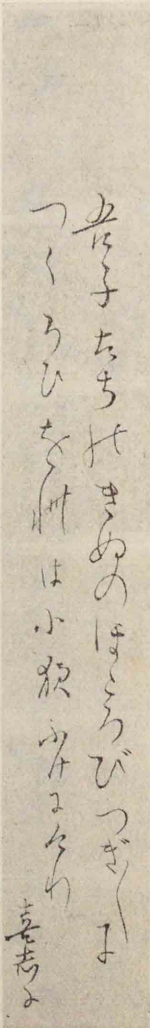 吾子たちのきぬのほころびつぎ〳〵に
つくろひをれは小夜ふけにけり
喜志子